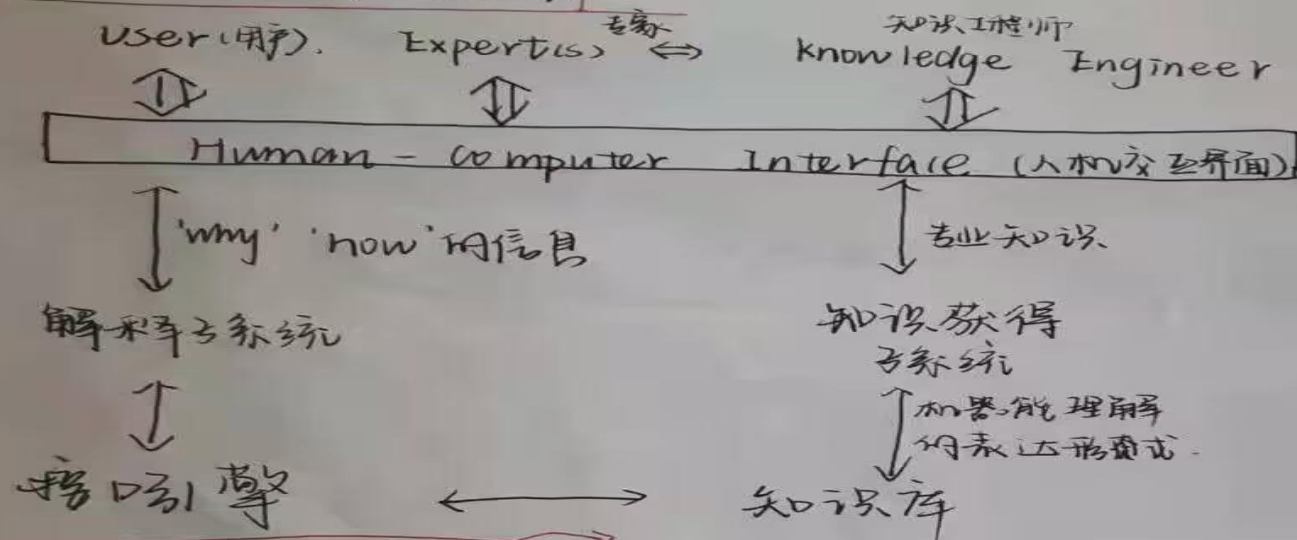 专家
知识工程师
User(用户). Expert(s) ⇔ Knowledge Engineer
Human - Computer Interface (人机交互界面)
'why' 'how'的信息
专业知识
解释子系统
知识获得
子系统
机器能理解
的表达形式.
引擎
知识库